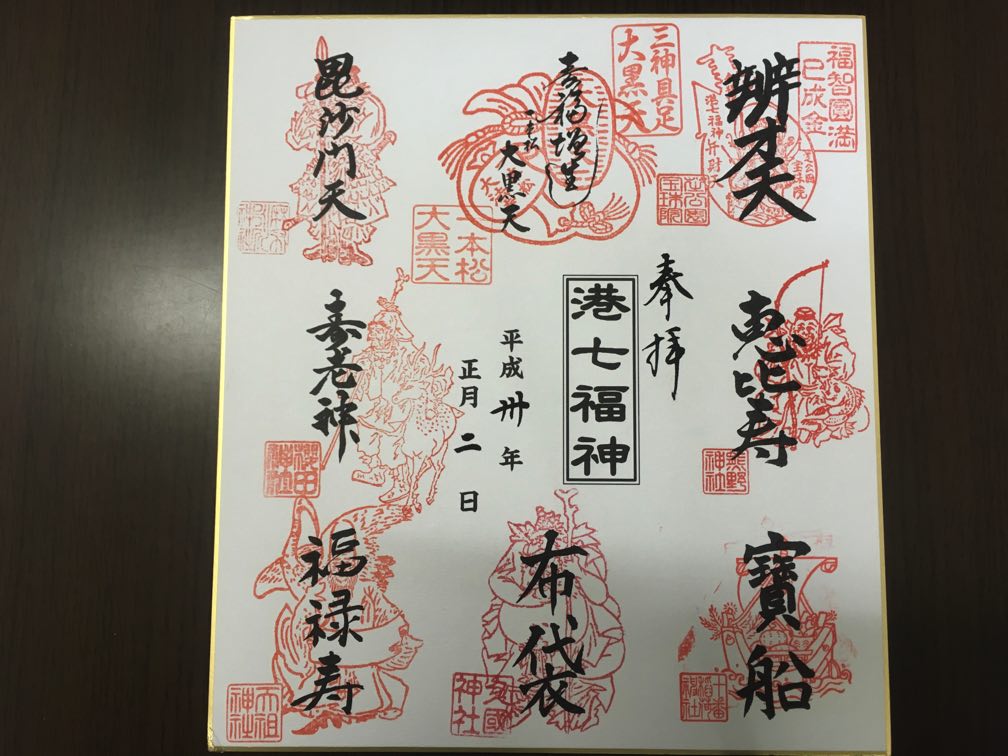 福智圓満
巳成金
辨才天
港七福神弁財天
芝公園
宝珠院
三神具足
大黒天
寿福増進
一本松
大黒天
一本松
大黒天
毘沙門天
奉拝
恵比寿
熊野
神社
港七福神
平成卅年
正月二日
寿老神
櫻田
神社
寳船
十番
稲荷
神社
布袋
久國
神社
福禄寿
天祖
神社